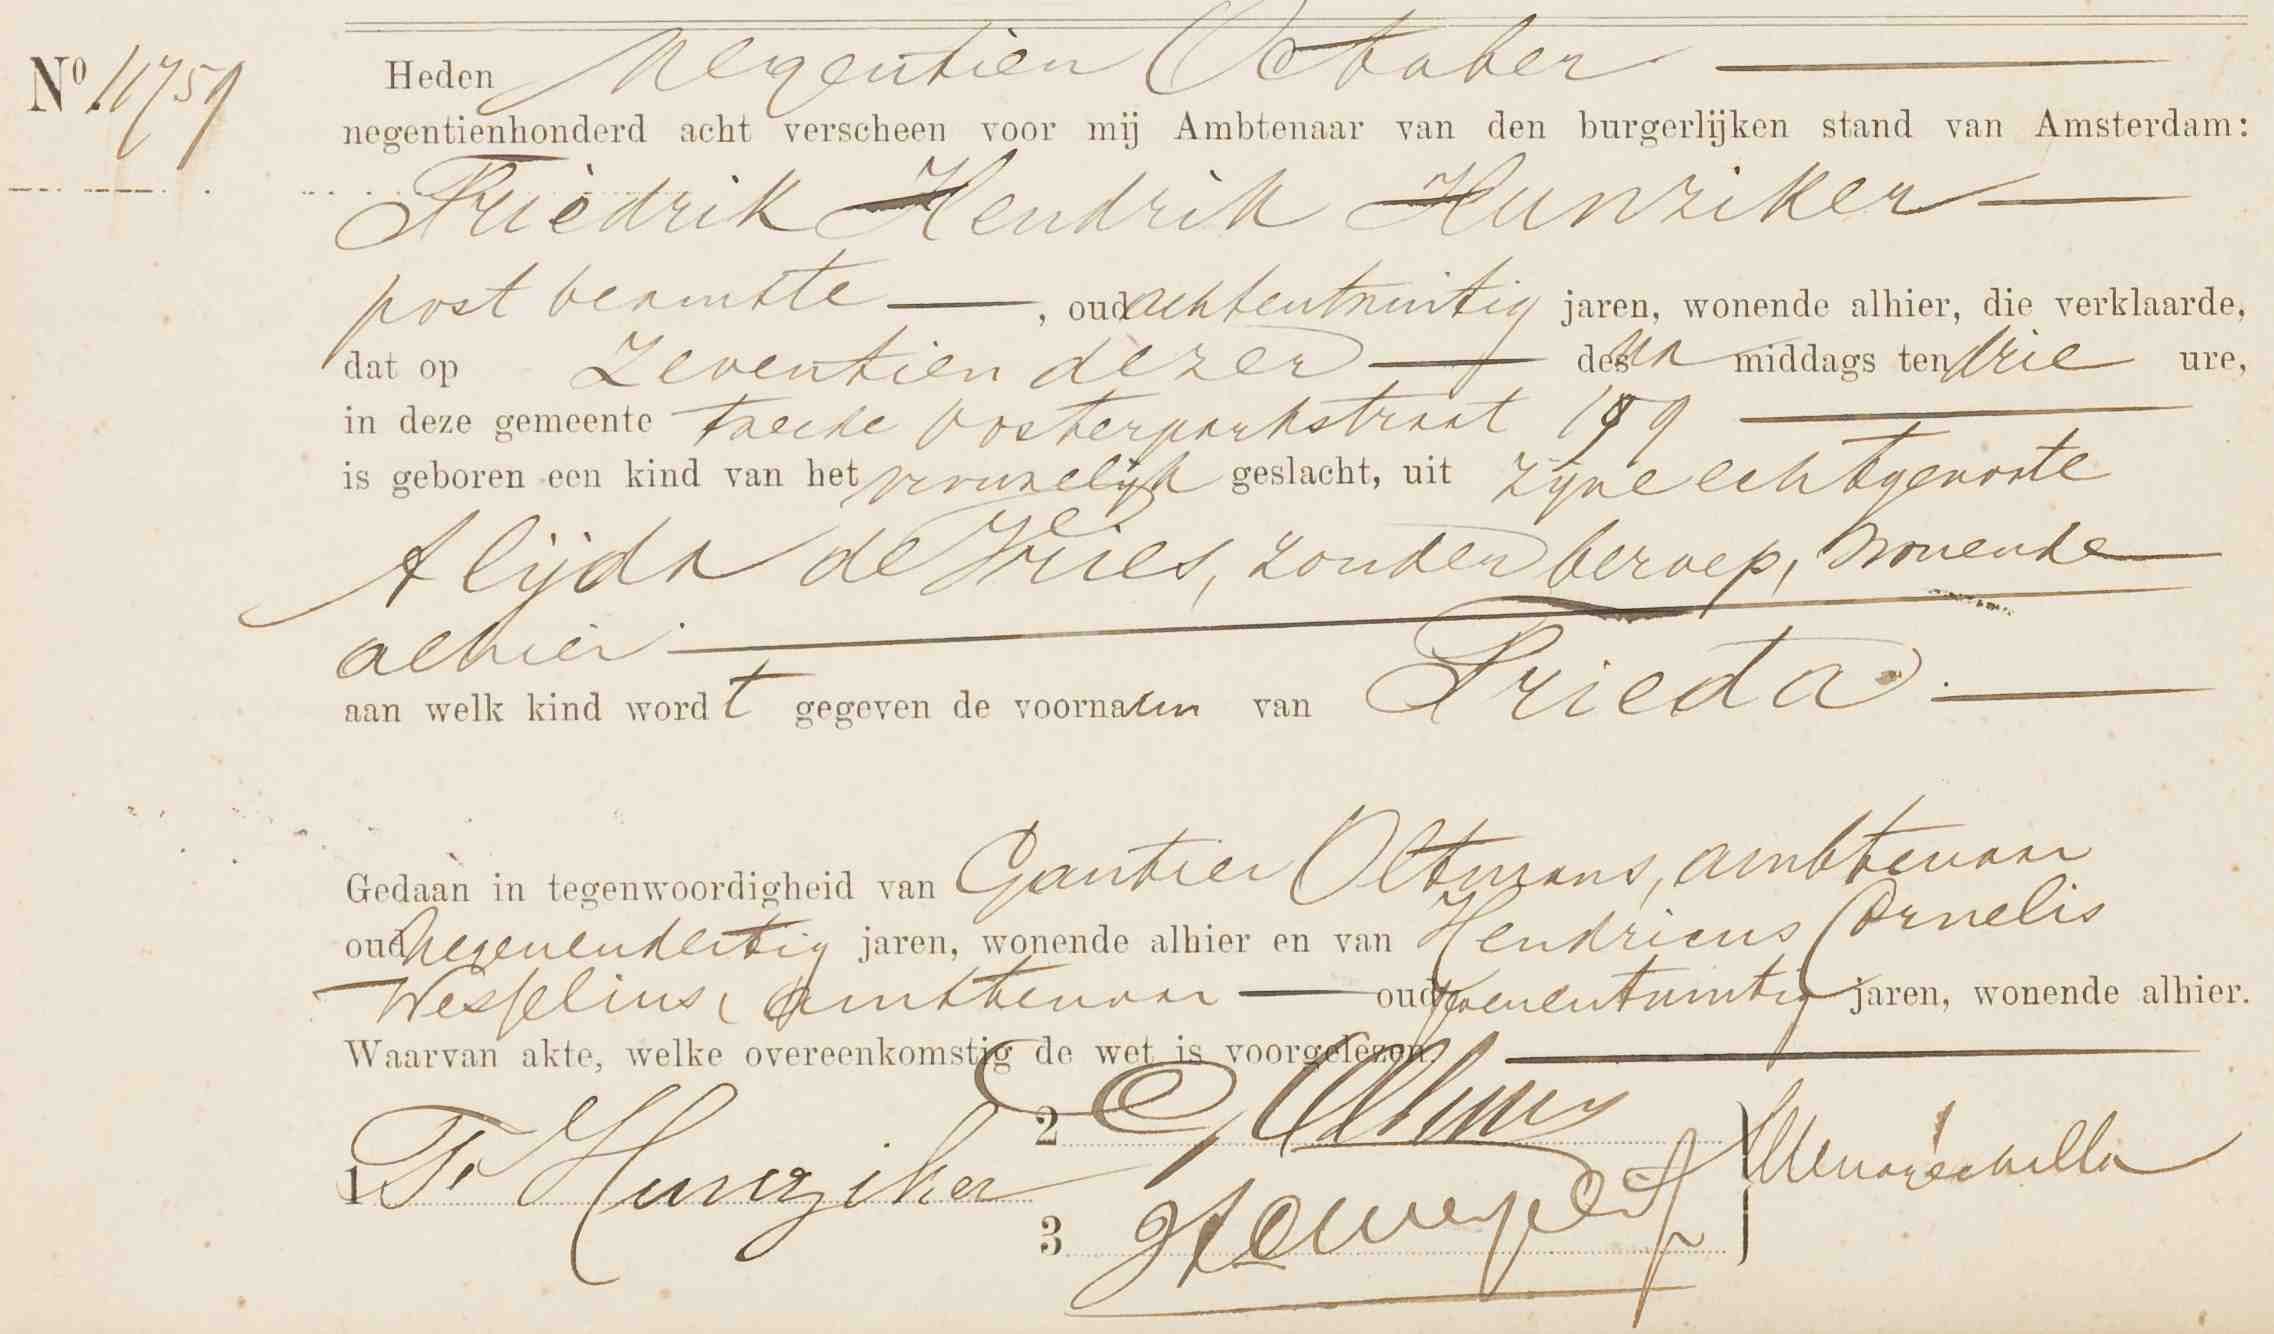 Nº 11759
Heden Negentien October
negentienhonderd acht verscheen voor mij Ambtenaar van den burgerlijken stand van Amsterdam:
Friedrik Hendrik Hunziker
post beambte, oud achtentwintig jaren, wonende alhier, die verklaarde,
dat op zeventien dezer des na middags ten drie ure,
in deze gemeente tweede Oosterparkstraat 159
is geboren een kind van het vrouwelijk geslacht, uit zijne echtgenoote
Alijda de Vries, zonder beroep, wonende
alhier
aan welk kind wordt gegeven de voornamen van Frieda.
Gedaan in tegenwoordigheid van Gautier Oltmans, ambtenaar
oud negenendertig jaren, wonende alhier en van Hendricus Cornelis
Wesselius, ambtenaar oud zevenentwintig jaren, wonende alhier.
Waarvan akte, welke overeenkomstig de wet is voorgelezen.
1 Fr Hunziker
2
3